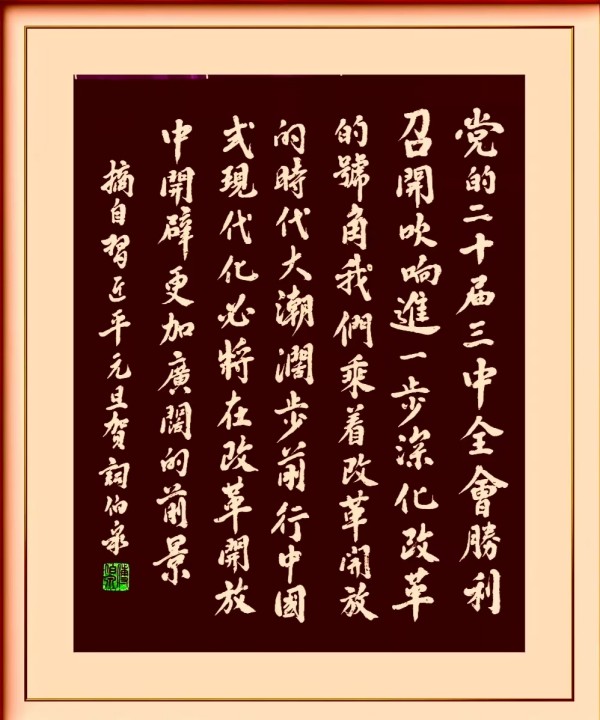 党的二十届三中全會勝利
召開吹响進一步深化改革
的號角我們乘着改革開放
的時代大潮濶步前行中國
式現代化必將在改革開放
中開辟更加廣闊的前景
摘自習近平元旦賀詞伯泉